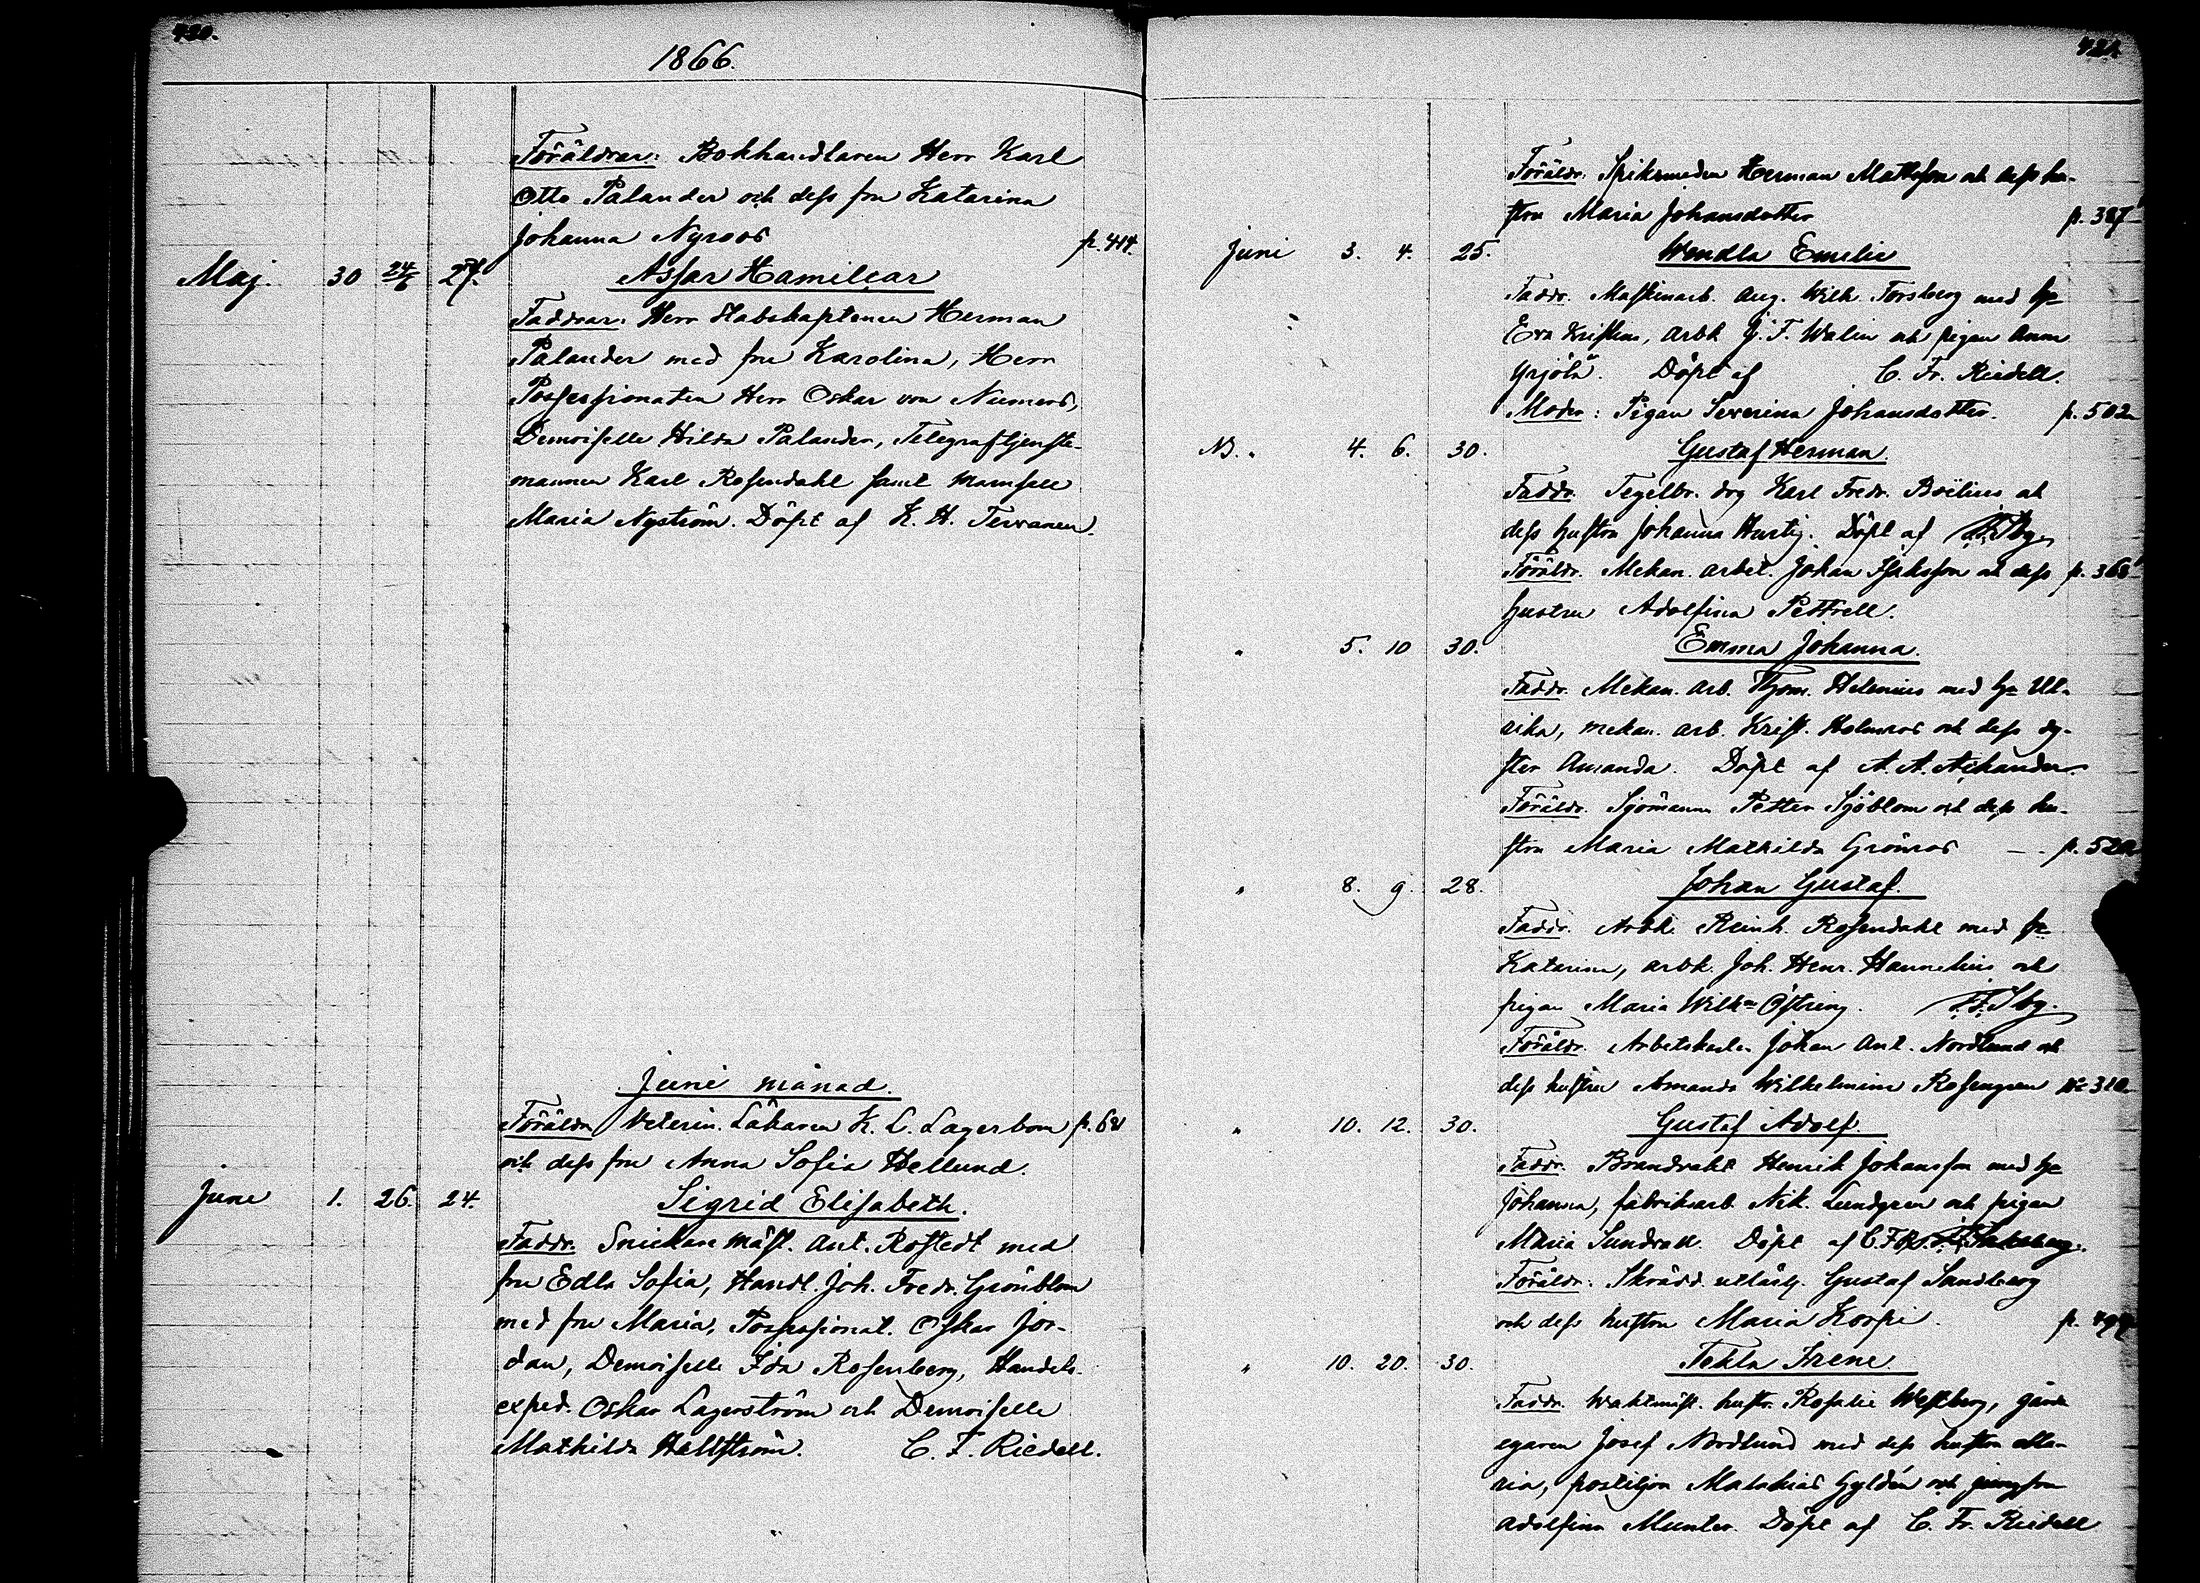 420.
1866.
Föräldrar: Bokhandlaren Herr Karl
Otto Palander och dess fru Katarina
Johanna Nyroos p. 414.
Maj. 30 24/6 27. Assar Hamilcar
Faddrar: Herr Stabskaptenen Herman
Palander med fru Karolina, Herr
Possessionaten Herr Oskar von Numers,
Demoiselle Hilda Palander, Telegraftjenste-
mannen Karl Rosendahl samt Mamsell
Maria Nyström. Döpt af K. H. Terranen.
Juni månad.
Föräldr. Veterin. Läkaren K. L. Lagerbom p. 621
och dess fru Anna Sofia Hellund.
June 1. 26. 24. Sigrid Elisabeth.
Faddr. Snickare mäst. Ant. Rostedt med
fru Edla Sofia, Handl. Joh. Fredr. Grönblom
med fru Maria, Possessionat. Oskar Jor-
dan, Demoiselle Ida Rosenberg, Handels-
exped. Oskar Lagerström och Demoiselle
Mathilda Hellström. C. F. Riedell.
421.
Föräldr: Spiksmeden Herman Mattsson och dess hu-
stru Maria Johansdotter p. 387
Juni 3. 4. 25. Wendla Emilie
Faddr. Maskinarb. Aug. Wilh. Forsberg med h:u
Eva Kristina, arbk. J. F. Walin och pigan Anna
Yrjölä. Döpt af C. Fr. Riedell.
Moder: Pigan Severina Johansdotter. p. 502
NB. " 4. 6. 30. Gustaf Herman.
Faddr. Tegelbr. drg Karl Fredr. Boëlius och
dess hustru Johanna Hurtig. Döpt af
Föräldr. Mekan. arbet. Johan Isaksson och dess p. 368
hustru Adolfina Pettrell.
" 5. 10 30. Emma Johanna.
Faddr. Mekan. arb. Thom. Helenius med h:u Ul-
rika, mekan. arb. Krist. Holmros och dess dot-
ter Amanda. Döpt af A. A. Aikander.
Föräldr. Sjömannen Petter Sjöblom och dess hu-
stru Maria Mathilda Grönros — p. 520
" 8. 9. 28. Johan Gustaf.
Faddr. Arbk. Reinh. Rosendahl med h:u
Katarina, arbk. Joh. Henr. Hannelius och
pigan Maria Wilh:a Östring.
Föräldr. Arbetskarlen Johan Ant. Nordlund och
dess hustru Amanda Wilhelmina Rosengren N:o 310
" 10. 12. 30. Gustaf Adolf.
Faddr. Brandvakt Henrik Johansson med h:u
Johanna, fabriksarb. Nik. Lundgren och pigan
Maria Sundvall. Döpt af C. F. R.
Föräldr: Skrädd. utlärg. Gustaf Sandberg
och dess hustru Maria Korpi. p. 494
" 10. 20. 30. Tekla Irene.
Faddr. Waktmäst. hustr. Rosalie Westberg, gårds
egaren Josef Nordlund med dess hustru Ma-
ria, postiljon Malakias Gyldén och jungfrun
Adolfina Munter. Döpt af C. Fr. Riedell